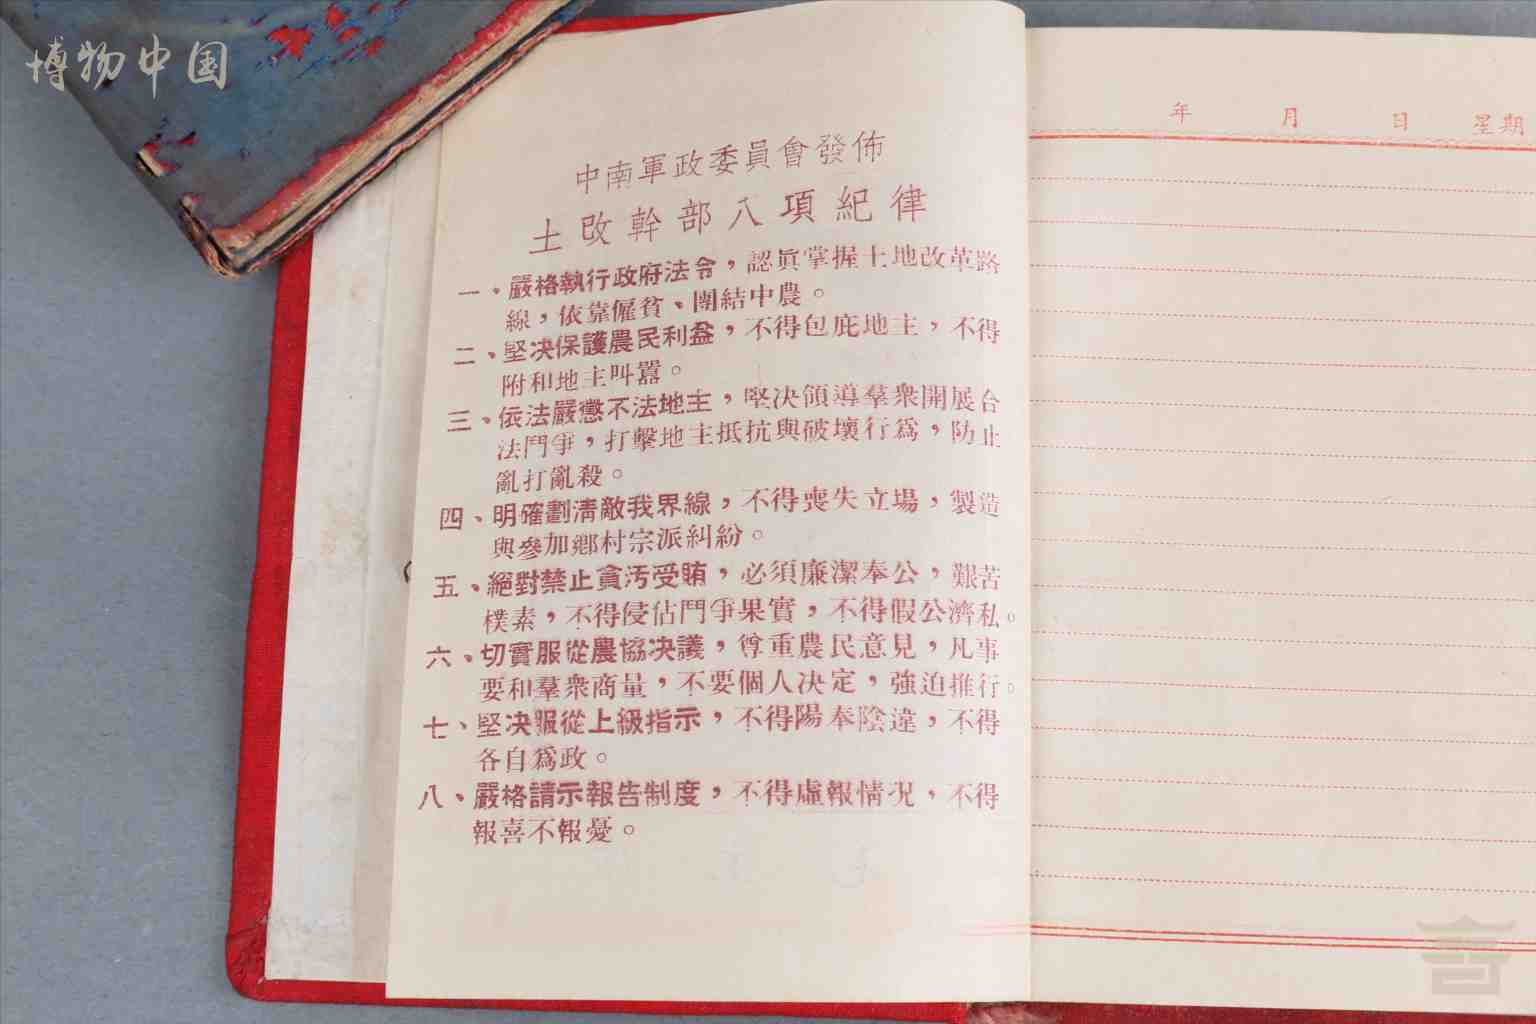 博物中国
中南軍政委員會發佈
土改幹部八項紀律
一、嚴格執行政府法令，認眞掌握土地改革路
線，依靠僱貧、團結中農。
二、堅决保護農民利益，不得包庇地主，不得
附和地主叫囂。
三、依法嚴懲不法地主，堅决領導羣衆開展合
法鬥爭，打擊地主抵抗與破壞行爲，防止
亂打亂殺。
四、明確劃淸敵我界線，不得喪失立場，製造
與參加鄕村宗派糾紛。
五、絕對禁止貪汚受賄，必須廉潔奉公，艱苦
樸素，不得侵佔鬥爭果實，不得假公濟私。
六、切實服從農協决議，尊重農民意見，凡事
要和羣衆商量，不要個人决定，強迫推行。
七、堅决服從上級指示，不得陽奉陰違，不得
各自爲政。
八、嚴格請示報告制度，不得虛報情况，不得
報喜不報憂。
年 月 日 星期